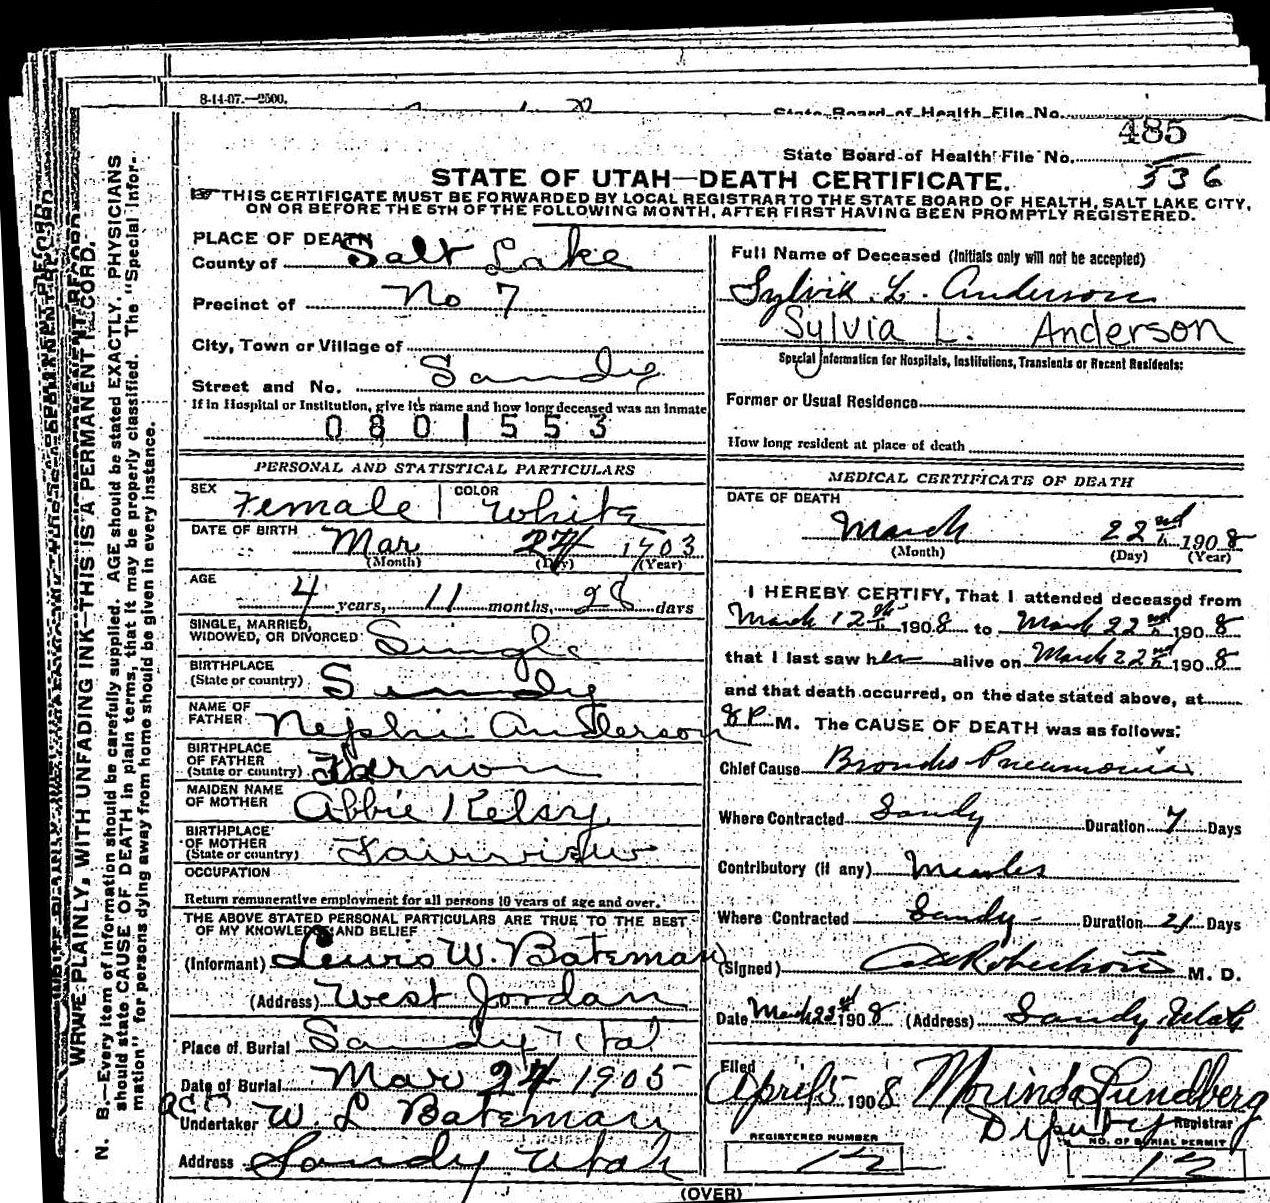 8-14-07.—2500.
State Board of Health File No.
485
State Board of Health File No.
536
STATE OF UTAH—DEATH CERTIFICATE.
THIS CERTIFICATE MUST BE FORWARDED BY LOCAL REGISTRAR TO THE STATE BOARD OF HEALTH, SALT LAKE CITY,
ON OR BEFORE THE 5TH OF THE FOLLOWING MONTH, AFTER FIRST HAVING BEEN PROMPTLY REGISTERED.
PLACE OF DEATH
County of Salt Lake
Precinct of No 7
City, Town or Village of
Street and No. Sandy
If in Hospital or Institution, give its name and how long deceased was an inmate
0801553
PERSONAL AND STATISTICAL PARTICULARS
SEX Female COLOR White
DATE OF BIRTH Mar 24 1903
(Month) (Day) (Year)
AGE 4 years, 11 months, 28 days
SINGLE, MARRIED,
WIDOWED, OR DIVORCED Single
BIRTHPLACE
(State or country) Sandy
NAME OF
FATHER Nephi Anderson
BIRTHPLACE
OF FATHER
(State or country) Vernon
MAIDEN NAME
OF MOTHER Abbie Kelsy
BIRTHPLACE
OF MOTHER
(State or country) Fairview
OCCUPATION
Return remunerative employment for all persons 10 years of age and over.
THE ABOVE STATED PERSONAL PARTICULARS ARE TRUE TO THE BEST
OF MY KNOWLEDGE AND BELIEF
(Informant) Lewis W. Bateman
(Address) West Jordan
Place of Burial Sandy Utah
Date of Burial Mar 24 1905
Undertaker W. L Bateman
Address Sandy Utah
Full Name of Deceased (Initials only will not be accepted)
Sylvia L. Anderson
Sylvia L. Anderson
Special Information for Hospitals, Institutions, Transients or Recent Residents:
Former or Usual Residence
How long resident at place of death
MEDICAL CERTIFICATE OF DEATH
DATE OF DEATH
March 22nd 1908
(Month) (Day) (Year)
I HEREBY CERTIFY, That I attended deceased from
March 12th 1908 to March 22nd 1908
that I last saw her alive on March 22nd 1908
and that death occurred, on the date stated above, at
8 P. M. The CAUSE OF DEATH was as follows:
Chief Cause Broncho Pneumonia
Where Contracted Sandy Duration 7 Days
Contributory (if any) Measles
Where Contracted Sandy Duration 21 Days
(Signed) Robertson M. D.
Date March 22nd 1908 (Address) Sandy Utah
Filed April 5 1908 Morinda Lundberg
Deputy Registrar
REGISTERED NUMBER
12
NO. OF BURIAL PERMIT
12
(OVER)
WRITE PLAINLY, WITH UNFADING INK—THIS IS A PERMANENT RECORD.
N. B.—Every item of information should be carefully supplied. AGE should be stated EXACTLY. PHYSICIANS
should state CAUSE OF DEATH in plain terms, that it may be properly classified. The "Special Infor-
mation" for persons dying away from home should be given in every instance.